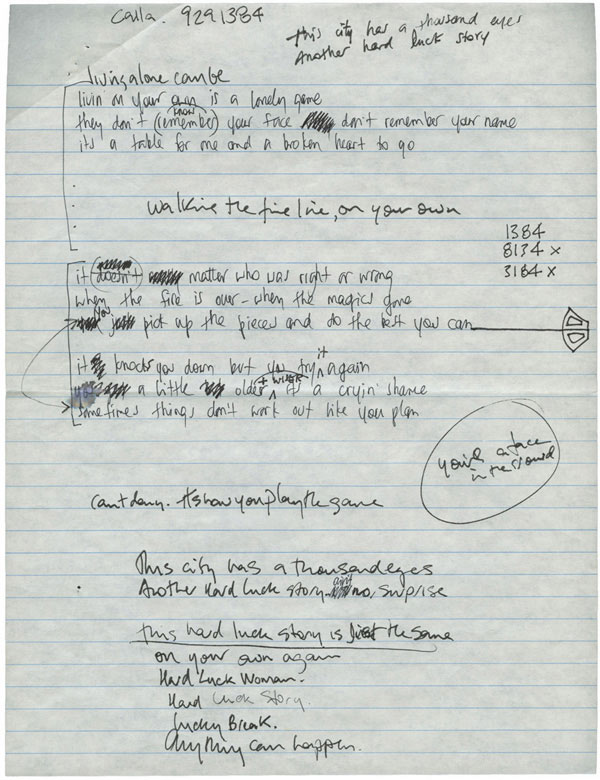 Calla. 9291384
This city has a thousand eyes
Another hard luck story
living alone can be
livin on your own is a lonely game
know
they don't (remember) your face don't remember your name
its a table for me and a broken heart to go
walkin the fine line, on your own
1384
8134 x
3184 x
it doesn't matter who was right or wrong
when the fire is over - when the magics gone
you just pick up the pieces and do the best you can
it knocks you down but you try it again
+ wiser
a little older its a cryin' shame
sometimes things don't work out like you plan
you're a face
in the crowd
cant deny. It's how you play the game
This city has a thousand eyes
Another Hard Luck story ain't no, surprise
this hard luck story is just the same
on your own again
Hard Luck Woman.
Hard Luck Story.
Lucky Break.
Anything can happen.